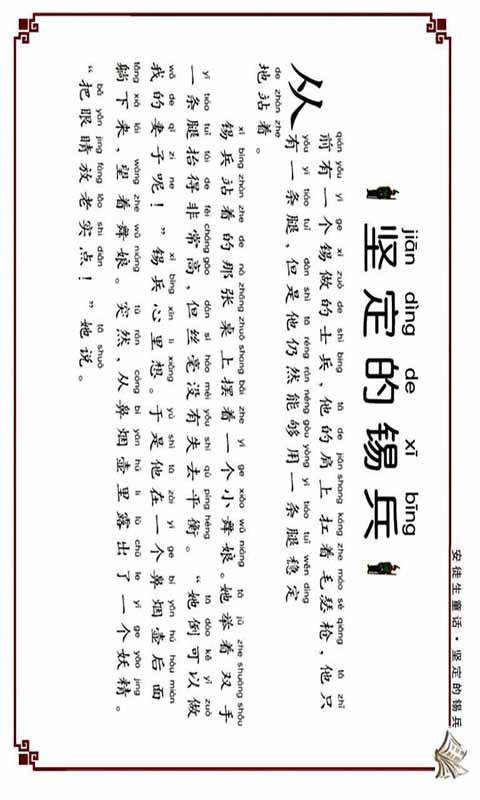 安徒生童话·坚定的锡兵
jiān dìng de xī bīng
坚定的锡兵
qián yǒu yí ge xī zuò de shì bīng tā de jiān shang káng zhe máo sè qiāng tā zhǐ
从前有一个锡做的士兵，他的肩上扛着毛瑟枪，他只
yǒu yì tiáo tuǐ dàn shì tā réng rán néng gòu yòng yì tiáo tuǐ wěn dìng
有一条腿，但是他仍然能够用一条腿稳定
de zhàn zhe
地站着。
xī bīng zhàn zhe de nà zhāng zhuō shang bǎi zhe yí ge xiǎo wǔ niáng tā jǔ zhe shuāng shǒu
锡兵站着的那张桌上摆着一个小舞娘。她举着双手
yì tiáo tuǐ tái de fēi cháng gāo dàn sī háo méi yǒu shī qù píng héng tā dào kě yǐ zuò
一条腿抬得非常高，但丝毫没有失去平衡。“她倒可以做
wǒ de qī zi ne xī bīng xīn li xiǎng yú shì tā zài yí ge bí yān hú hòu miàn
我的妻子呢！”锡兵心里想。于是他在一个鼻烟壶后面
tǎng xià lái wàng zhe wǔ niáng tū rán cóng bí yān hú li lù chū le yí ge yāo jing
躺下来，望着舞娘。突然，从鼻烟壶里露出了一个妖精。
bǎ yǎn jing fàng lǎo shi diǎn tā shuō
“把眼睛放老实点！”她说。